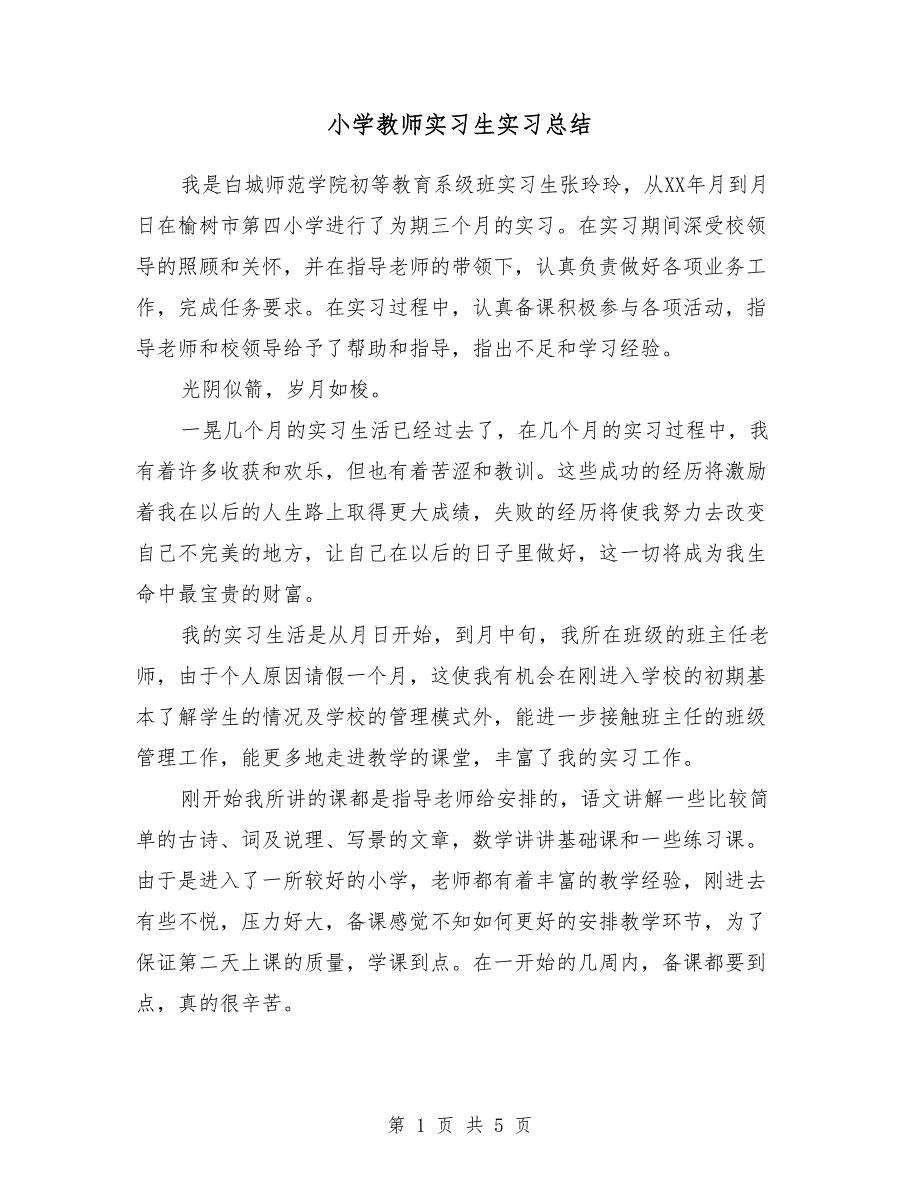 小学教师实习生实习总结
我是白城师范学院初等教育系级班实习生张玲玲，从XX年月到月
日在榆树市第四小学进行了为期三个月的实习。在实习期间深受校领
导的照顾和关怀，并在指导老师的带领下，认真负责做好各项业务工
作，完成任务要求。在实习过程中，认真备课积极参与各项活动，指
导老师和校领导给予了帮助和指导，指出不足和学习经验。
光阴似箭，岁月如梭。
一晃几个月的实习生活已经过去了，在几个月的实习过程中，我
有着许多收获和欢乐，但也有着苦涩和教训。这些成功的经历将激励
着我在以后的人生路上取得更大成绩，失败的经历将使我努力去改变
自己不完美的地方，让自己在以后的日子里做好，这一切将成为我生
命中最宝贵的财富。
我的实习生活是从月日开始，到月中旬，我所在班级的班主任老
师，由于个人原因请假一个月，这使我有机会在刚进入学校的初期基
本了解学生的情况及学校的管理模式外，能进一步接触班主任的班级
管理工作，能更多地走进教学的课堂，丰富了我的实习工作。
刚开始我所讲的课都是指导老师给安排的，语文讲解一些比较简
单的古诗、词及说理、写景的文章，数学讲讲基础课和一些练习课。
由于是进入了一所较好的小学，老师都有着丰富的教学经验，刚进去
有些不悦，压力好大，备课感觉不知如何更好的安排教学环节，为了
保证第二天上课的质量，学课到点。在一开始的几周内，备课都要到
点，真的很辛苦。
第 1 页 共 5 页